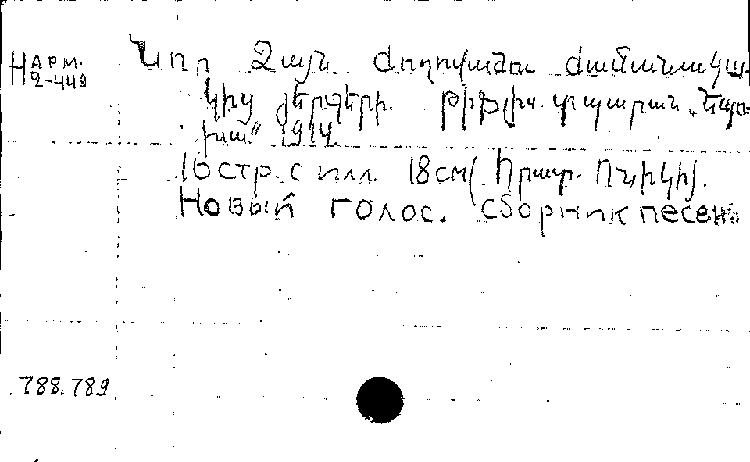 НАРМ.
2-449
Նոր Ձայն ժողովածու ժամանակա-
կից երգերի. Թիֆլիս. տպարան „
1914.
16 стр. с илл. 18 см. (Հրատ.
Новый голос. Сборник песен.
788.789